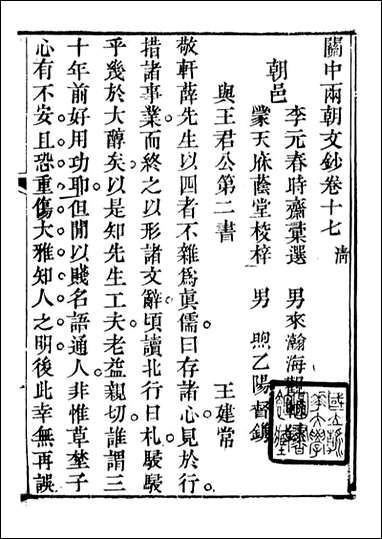 關中兩朝文鈔卷十七 清
朝邑
李元春時齋彙選 男來瀚海觀
蒙天庥蔭堂校梓 男 煦乙陽督鐫
與王君公第二書
王建常
敬軒薛先生以四者不雜爲眞儒曰存諸心見於行
措諸事業而終之以形諸文辭頃讀北行日札駸駸
乎幾於大醇矣以是知先生工夫老益親切誰謂三
十年前好用功耶但閒以賤名語通人非惟草埜子
心有不安且恐重傷大雅知人之明後此幸無再誤
一